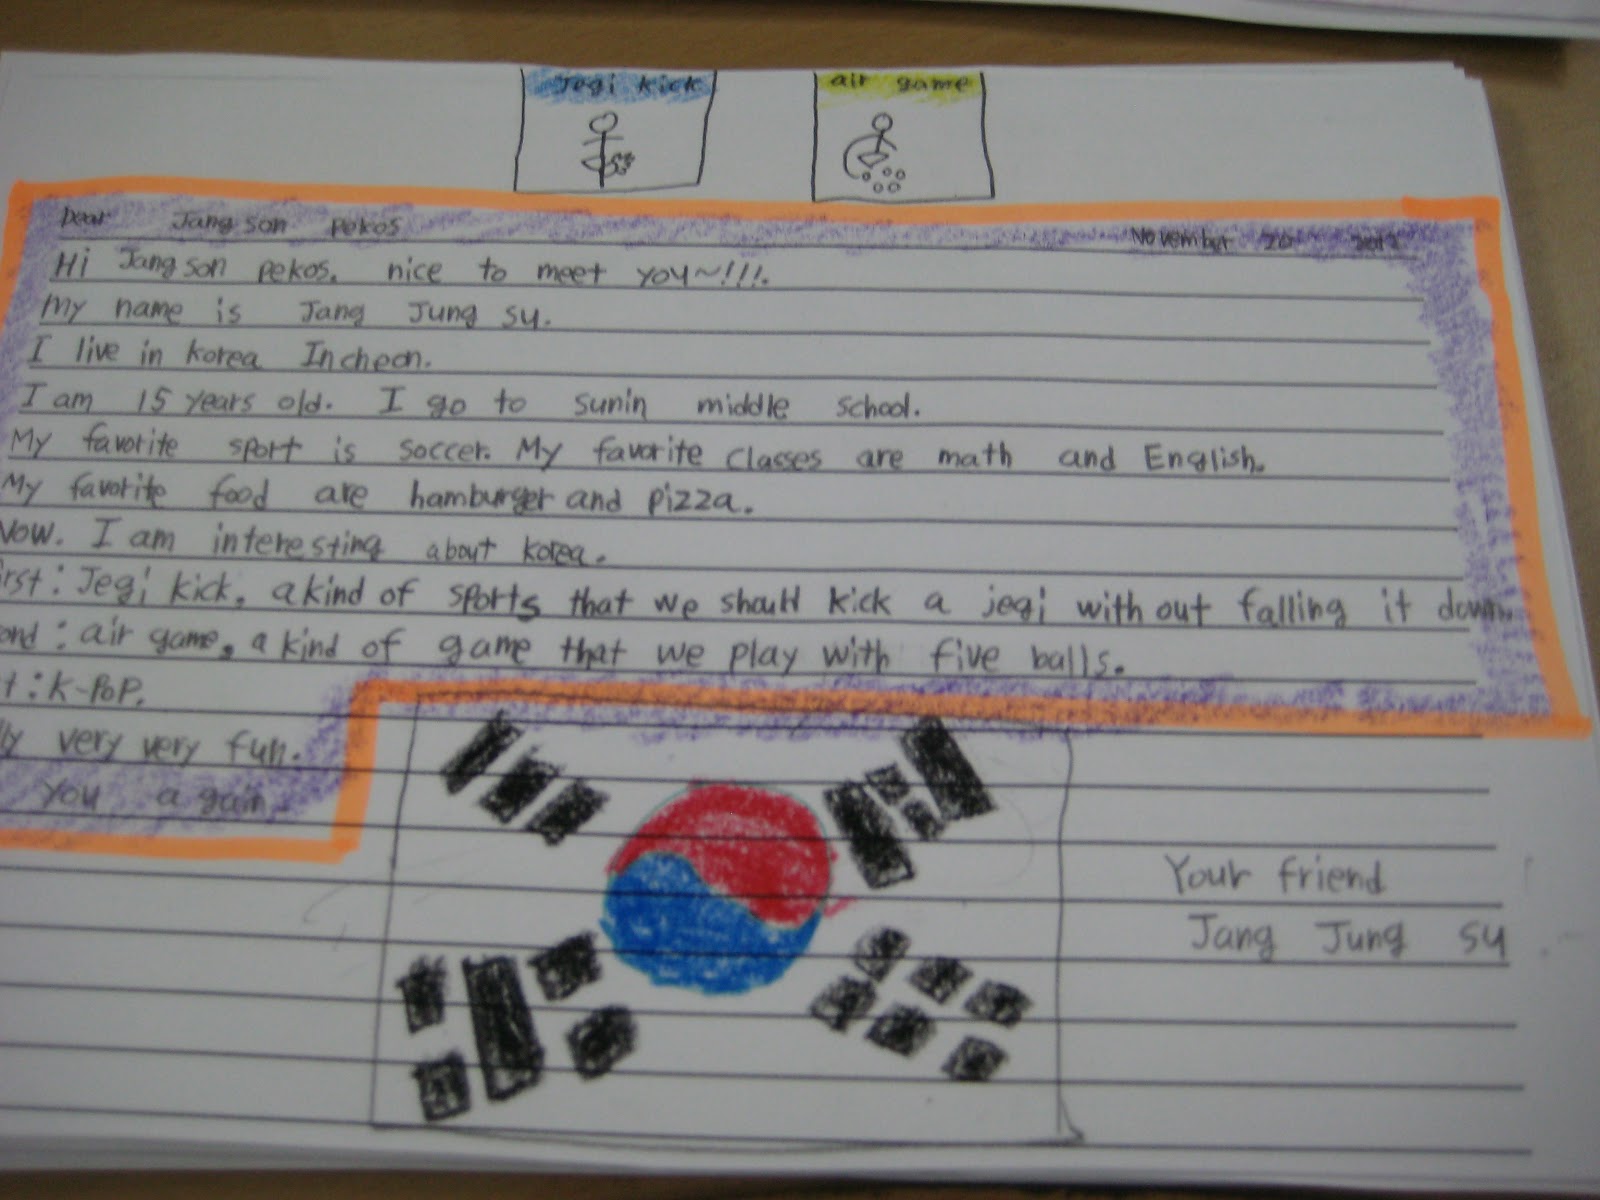 Jegi kick
air game
Dear Jangson pekos
November 20 2012
Hi Jangson pekos. nice to meet you~!!!.
My name is Jang Jung su.
I live in korea Incheon.
I am 15 years old. I go to sunin middle school.
My favorite sport is soccer. My favorite classes are math and English.
My favorite food are hamburger and pizza.
Now. I am interesting about korea.
irst: Jegi kick, a kind of sports that we should kick a jegi with out falling it down.
ond: air game, a kind of game that we play with five balls.
t: K-POP.
lly very very fun.
you again
Your friend
Jang Jung su